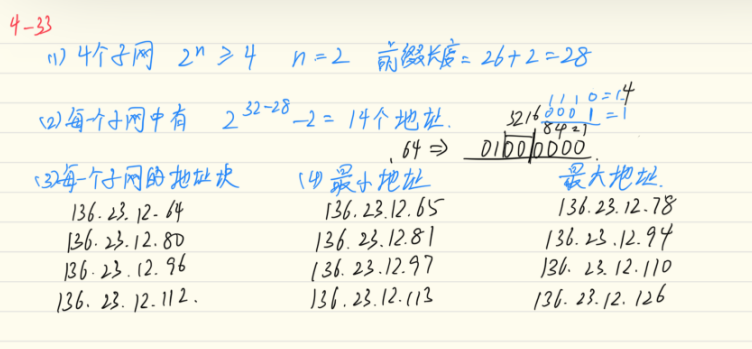 4-33
(1) 4个子网 2^n ≥ 4 n = 2 前缀长度 = 26 + 2 = 28
1 1 1 0 = 14
(2) 每个子网中有 2^{32-28} - 2 = 14个地址. 3216 0001 = 1
8421
.64 ⇒ 01000000.
(3) 每一个子网的地址块 (4) 最小地址 最大地址.
136.23.12.64 136.23.12.65 136.23.12.78
136.23.12.80 136.23.12.81 136.23.12.94
136.23.12.96 136.23.12.97 136.23.12.110
136.23.12.112. 136.23.12.113 136.23.12.126